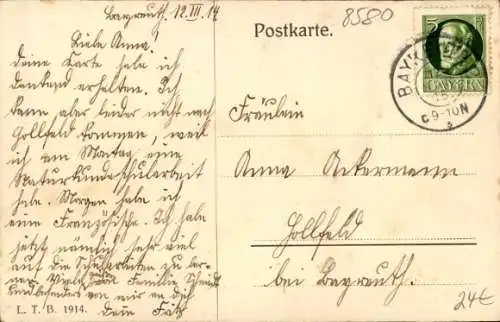 Bayreuth, 12. III. 14
Liebe Anna!
Deine Karte habe ich
dankend erhalten. Ich
kann aber leider nicht nach
Hollfeld kommen, weil
ich am Montag eine
Naturkundeschularbeit
habe. Morgen habe ich
eine Französische. Ich habe
jetzt nämlich sehr viel
auf die Schularbeiten zu ler-
nen. Viele Grüße Familie Schmidt
und besonders von mir an dich
Dein Fritz
L. T. B. 1914.
Postkarte.
8580
BAYERN
9-10N
Fräulein
Anna Ackermann
Hollfeld
bei Bayreuth.
24€